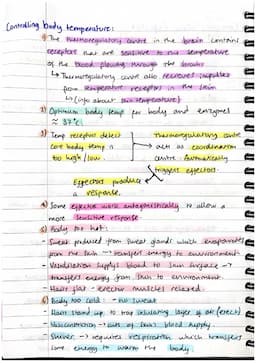 Controlling body temperature:
1) The thermoregulatory centre in the brain contains
receptors that are sensitive to the temperature
of the blood flowing through the brain
↳ Thermoregulatory centre also receives impulses
from temperature receptors in the skin
↳ (info about skin temperature)
2) Optimum body temp for body and enzymes
≈ 37°C
3) Temp receptors detect
core body temp is
too high / low.
→ Thermoregulatory centre
acts as coordination
centre - Automatically
triggers effectors.
Effectors produce
a response.
4) Some effectors work antagonistically to allow a
more sensitive response
5) Body too hot:
- Sweat produced from sweat glands which evaporates
from the skin → transfers energy to environment
- Vasodilation supplys blood to skin surface →
transfers energy from skin to environment
- Hairs flat - erector muscles relaxed.
6) Body too cold: - no sweat
- Hairs stand up to trap insulating layer of air (erect)
- Vasoconstriction - cuts off skin's blood supply.
- Shiver → requires respiration which transfers
some energy to warm the body.